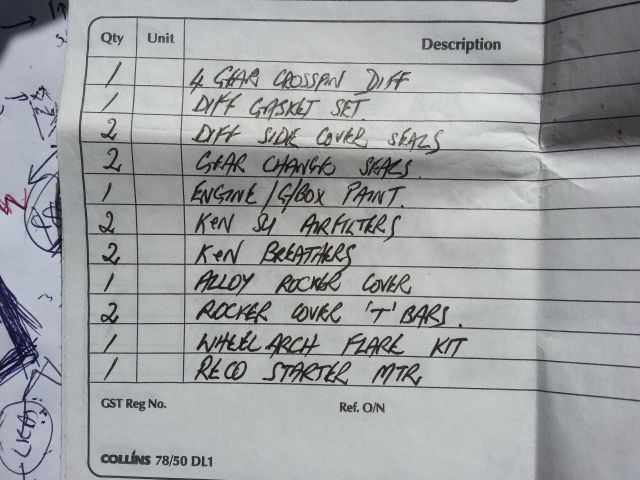 Qty Unit Description
1 4 GEAR CROSSPIN DIFF
1 DIFF GASKET SET
2 DIFF SIDE COVER SEALS
2 GEAR CHANGE SEALS.
1 ENGINE/G/BOX PAINT.
2 KeN SU AIRFILTERS
2 KeN BREATHERS
1 ALLOY ROCKER COVER
2 ROCKER COVER 'T' BARS.
1 WHEEL ARCH FLARE KIT
1 RECO STARTER MTR
GST Reg No. Ref. O/N
COLLINS 78/50 DL1